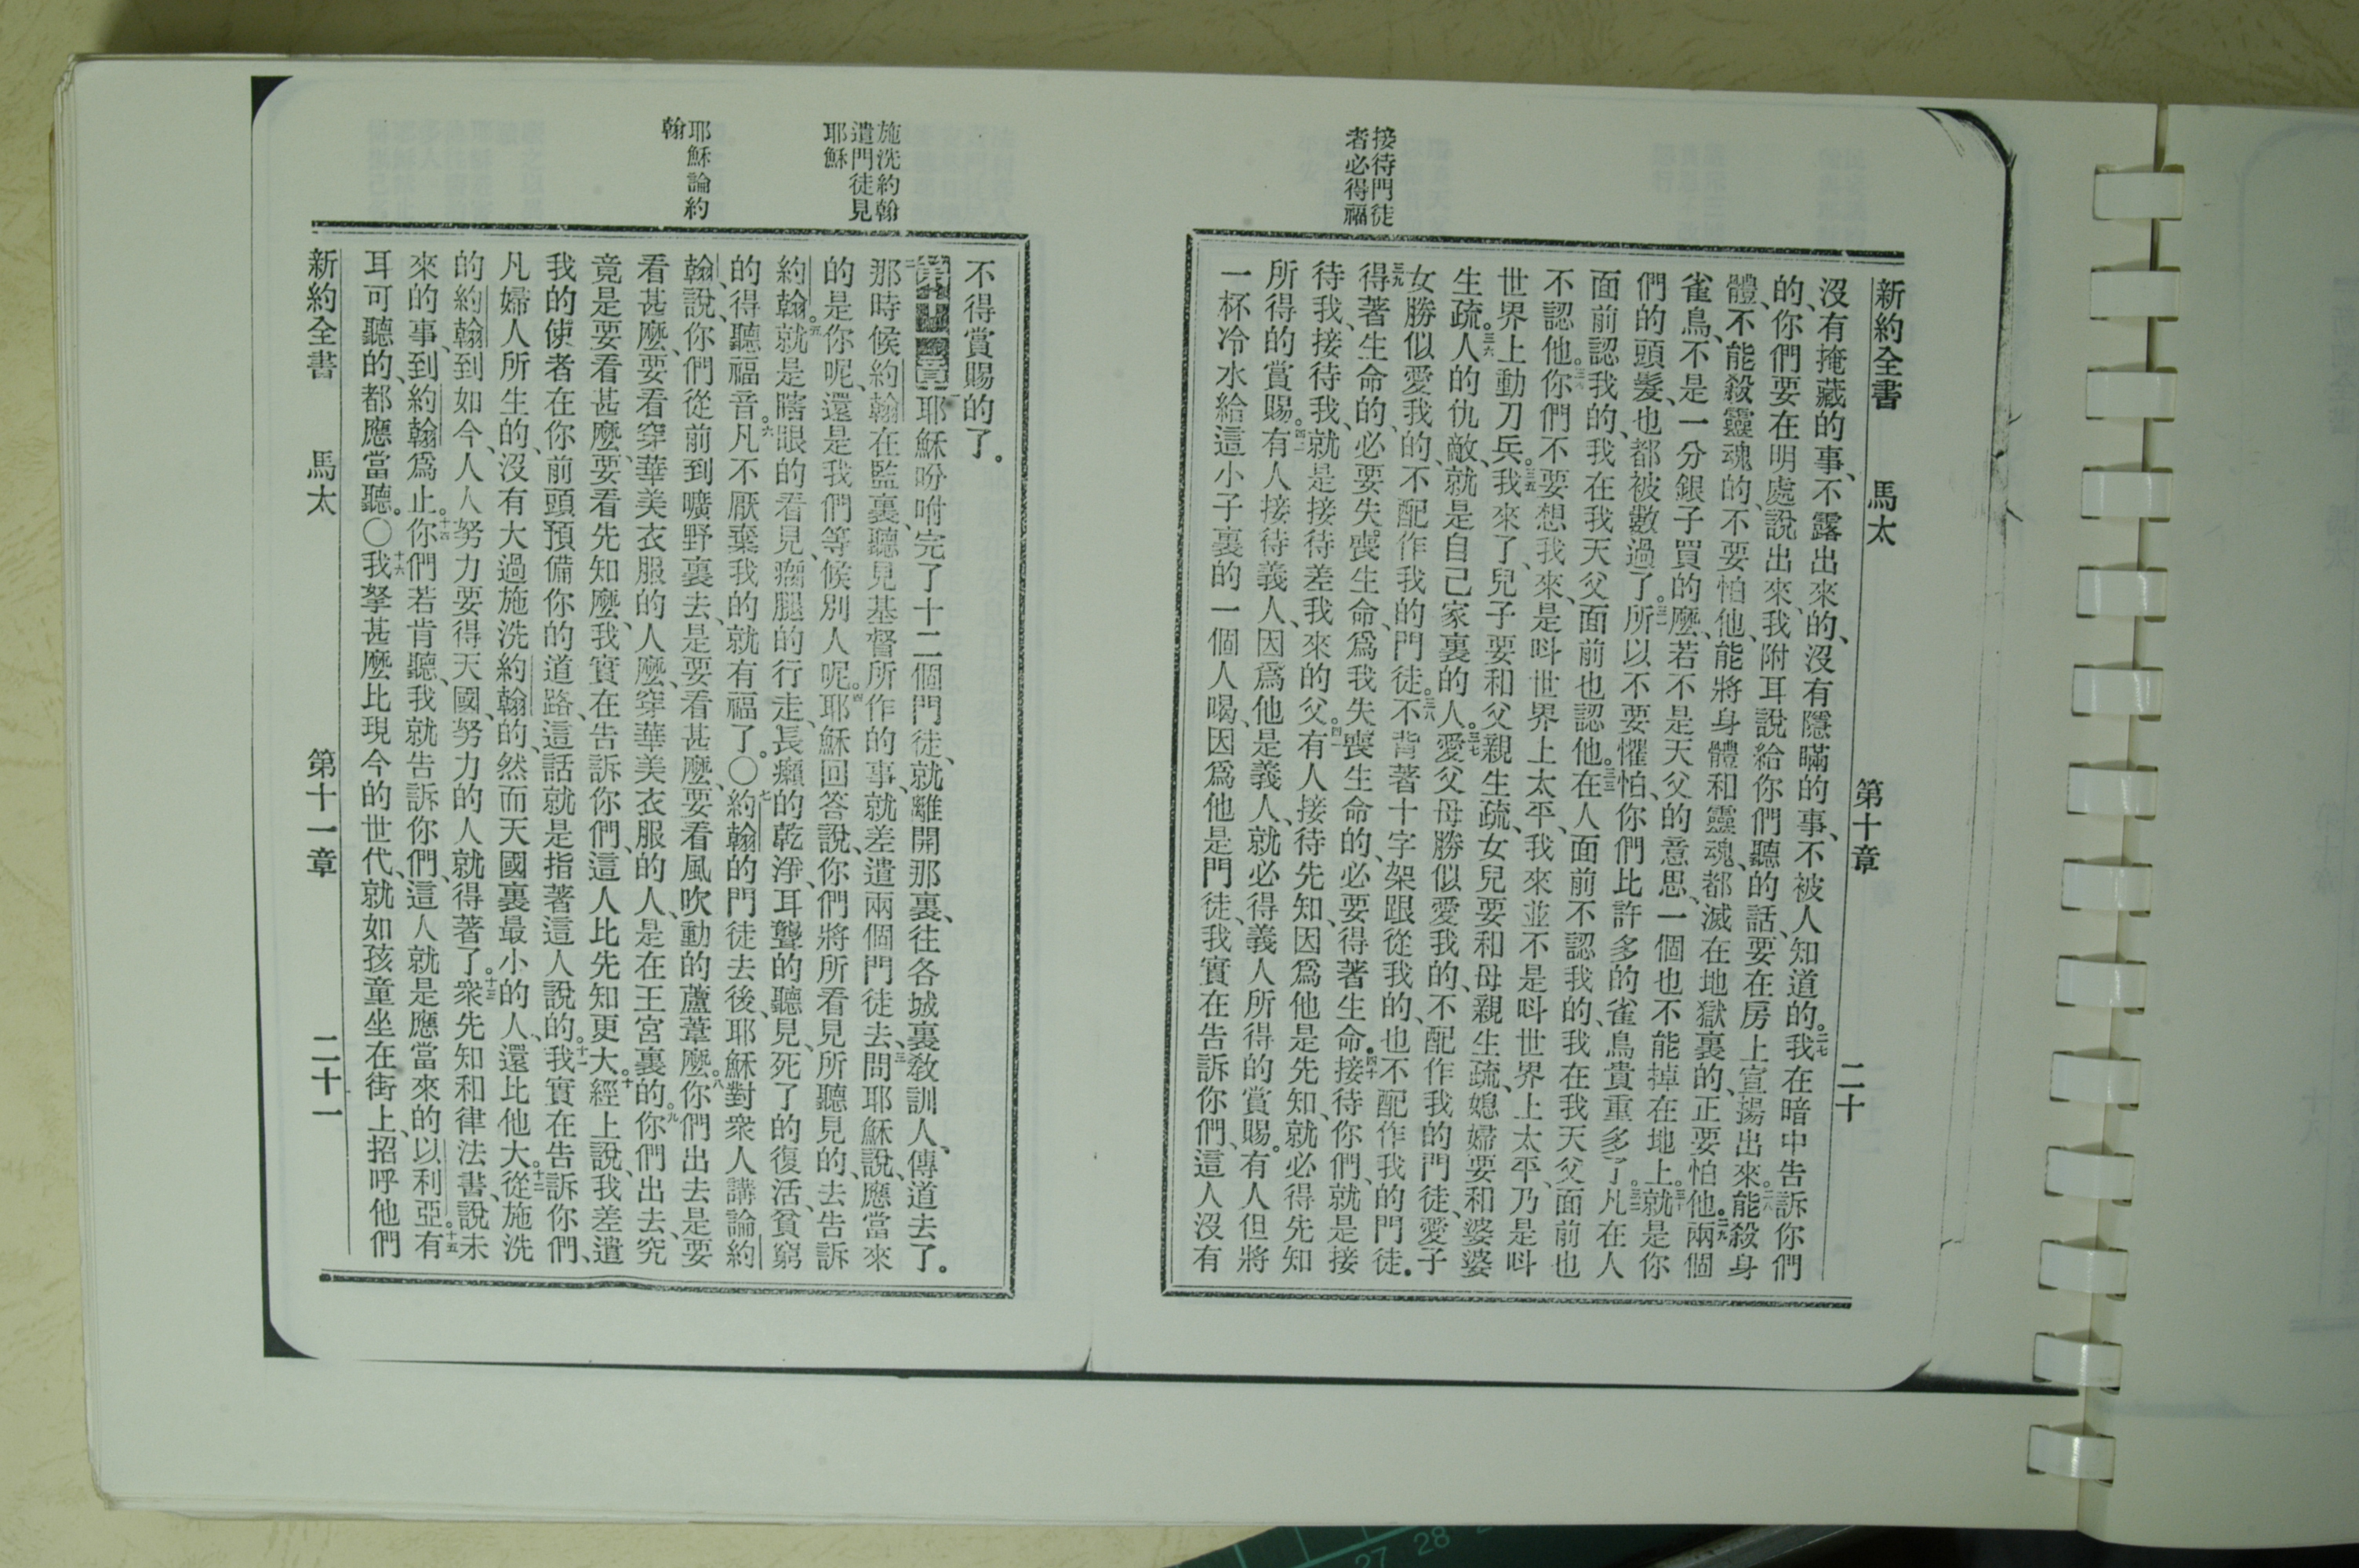 新約全書 馬太 第十章 二十
接待門徒
者必得福
沒有掩藏的事、不露出來的、沒有隱瞞的事、不被人知道的。二七我在暗中告訴你們
的、你們要在明處說出來、我附耳說給你們聽的話、要在房上宣揚出來。二八能殺身
體、不能殺靈魂的、不要怕他、能將身體和靈魂、都滅在地獄裏的、正要怕他。二九兩個
雀鳥、不是一分銀子買的麼、若不是天父的意思、一個也不能掉在地上。三十就是你
們的頭髮、也都被數過了。三一所以不要懼怕、你們比許多的雀鳥貴重多了。三二凡在人
面前認我的、我在我天父面前也認他。三三在人面前不認我的、我在我天父面前也
不認他。三四你們不要想我來、是呌世界上太平、我來並不是呌世界上太平、乃是呌
世界上動刀兵。三五我來了、兒子要和父親生疏、女兒要和母親生疏、媳婦要和婆婆
生疏。三六人的仇敵、就是自己家裏的人。三七愛父母勝似愛我的、不配作我的門徒、愛子
女勝似愛我的、不配作我的門徒。三八不背著十字架跟從我的、也不配作我的門徒。
三九得著生命的、必要失喪生命、爲我失喪生命的、必要得著生命。四十接待你們、就是接
待我、接待我、就是接待差我來的父。四一有人接待先知、因爲他是先知、就必得先知
所得的賞賜。四二有人接待義人、因爲他是義人、就必得義人所得的賞賜。有人但將
一杯冷水給這小子裏的一個人喝、因爲他是門徒、我實在告訴你們、這人沒有
施洗約翰
遣門徒見
耶穌
耶穌論約
翰
不得賞賜的了。
第十一章 耶穌吩咐完了十二個門徒、就離開那裏、往各城裏敎訓人、傳道去了。
二那時候約翰在監裏、聽見基督所作的事、就差遣兩個門徒去、三問耶穌說、應當來
的是你呢、還是我們等候別人呢。四耶穌回答說、你們將所看見所聽見的、去告訴
約翰。五就是瞎眼的看見、瘸腿的行走、長癩的乾淨、耳聾的聽見、死了的復活、貧窮
的得聽福音。六凡不厭棄我的、就有福了。〇七約翰的門徒去後、耶穌對衆人講論約
翰、說、你們從前到曠野裏去、是要看甚麼、要看風吹動的蘆葦麼。八你們出去是要
看甚麼、要看穿華美衣服的人麼、穿華美衣服的人、是在王宮裏的。九你們出去、究
竟是要看甚麼、要看先知麼、我實在告訴你們、這人比先知更大。十經上說、我差遣
我的使者在你前頭預備你的道路、這話就是指著這人說的。十一我實在告訴你們、
凡婦人所生的、沒有大過施洗約翰的、然而天國裏最小的人、還比他大。十二從施洗
的約翰到如今、人人努力要得天國、努力的人、就得著了。十三衆先知和律法書、說未
來的事、到約翰爲止。十四你們若肯聽、我就告訴你們、這人就是應當來的以利亞。十五有
耳可聽的、都應當聽。〇十六我拏甚麼比現今的世代、就如孩童坐在街上、招呼他們
新約全書 馬太 第十一章 二十一
27 28